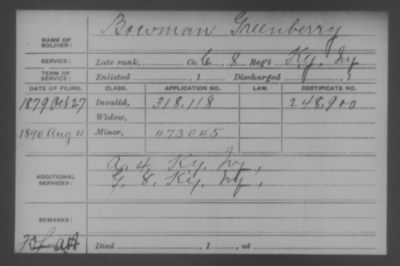 Bowman Greenberry
NAME OF SOLDIER:
SERVICE: Late rank, Co. G, 8 Reg't Ky. Inf
TERM OF SERVICE: Enlisted , 1 Discharged , 1
DATE OF FILING. CLASS. APPLICATION NO. LAW. CERTIFICATE NO.
1879 Oct 27 Invalid, 318,118 248,900
Widow,
1890 Aug 11 Minor, 473045
A. 4, Ky. Inf,
ADDITIONAL SERVICES: G. 8. Ky. Inf,
REMARKS:
Died , 1 , at